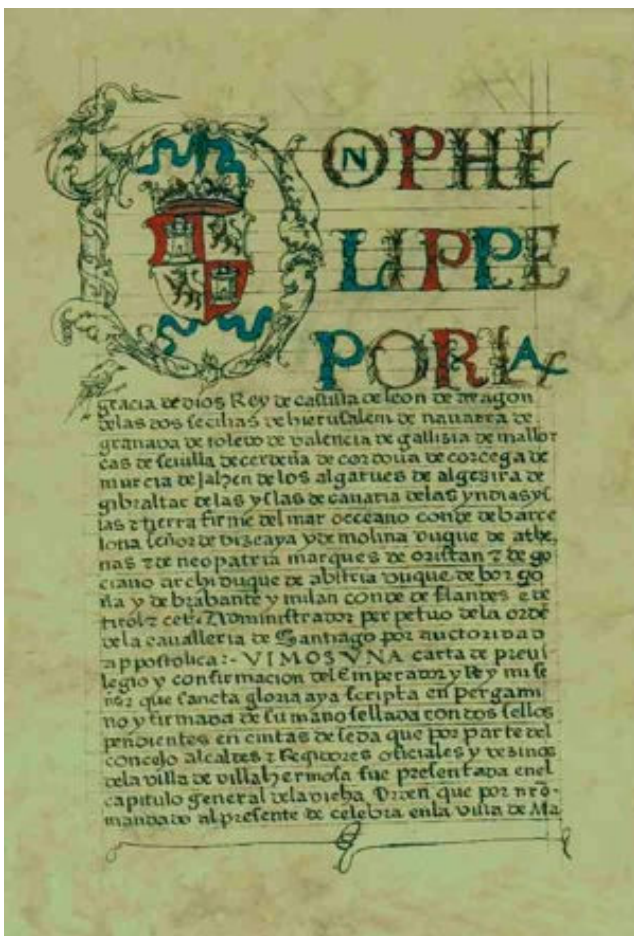 DON PHE
LIPPE
POR LA
gracia de dios Rey de castilla de leon de aragon
delas dos secilias de hierusalem de nauarra de
granada de toledo de valencia de gallizia de mallor
cas de seuilla de cerdeña de cordoua de corcega de
murcia de Jahen de los algarues de algezira de
gibraltar delas yslas de canaria delas yndias ys
las z tierra firme del mar occeano conde de barce
lona señor de vizcaya y de molina duque de athe,
nas z de neopatria marques de oristan z de go
ciano archiduque de abstria duque de borgo
ña y de brabante y milan conde de flandes e de
tirol z cet. Administrador perpetuo dela ordē
dela caualleria de Santiago por auctoridad
appostolica:- VIMOS VNA carta de preui
legio y confirmacion del Emperador y Rey mi se
ñor que sancta gloria aya scripta en pergami
no y firmada de su mano sellada con dos sellos
pendientes en cintas de seda que por parte del
concejo alcaldes z Regidores oficiales y vezinos
dela villa de villahermosa fue presentada enel
capitulo general dela dicha Orden que por nrō
mandado al presente se celebra enla villa de Ma